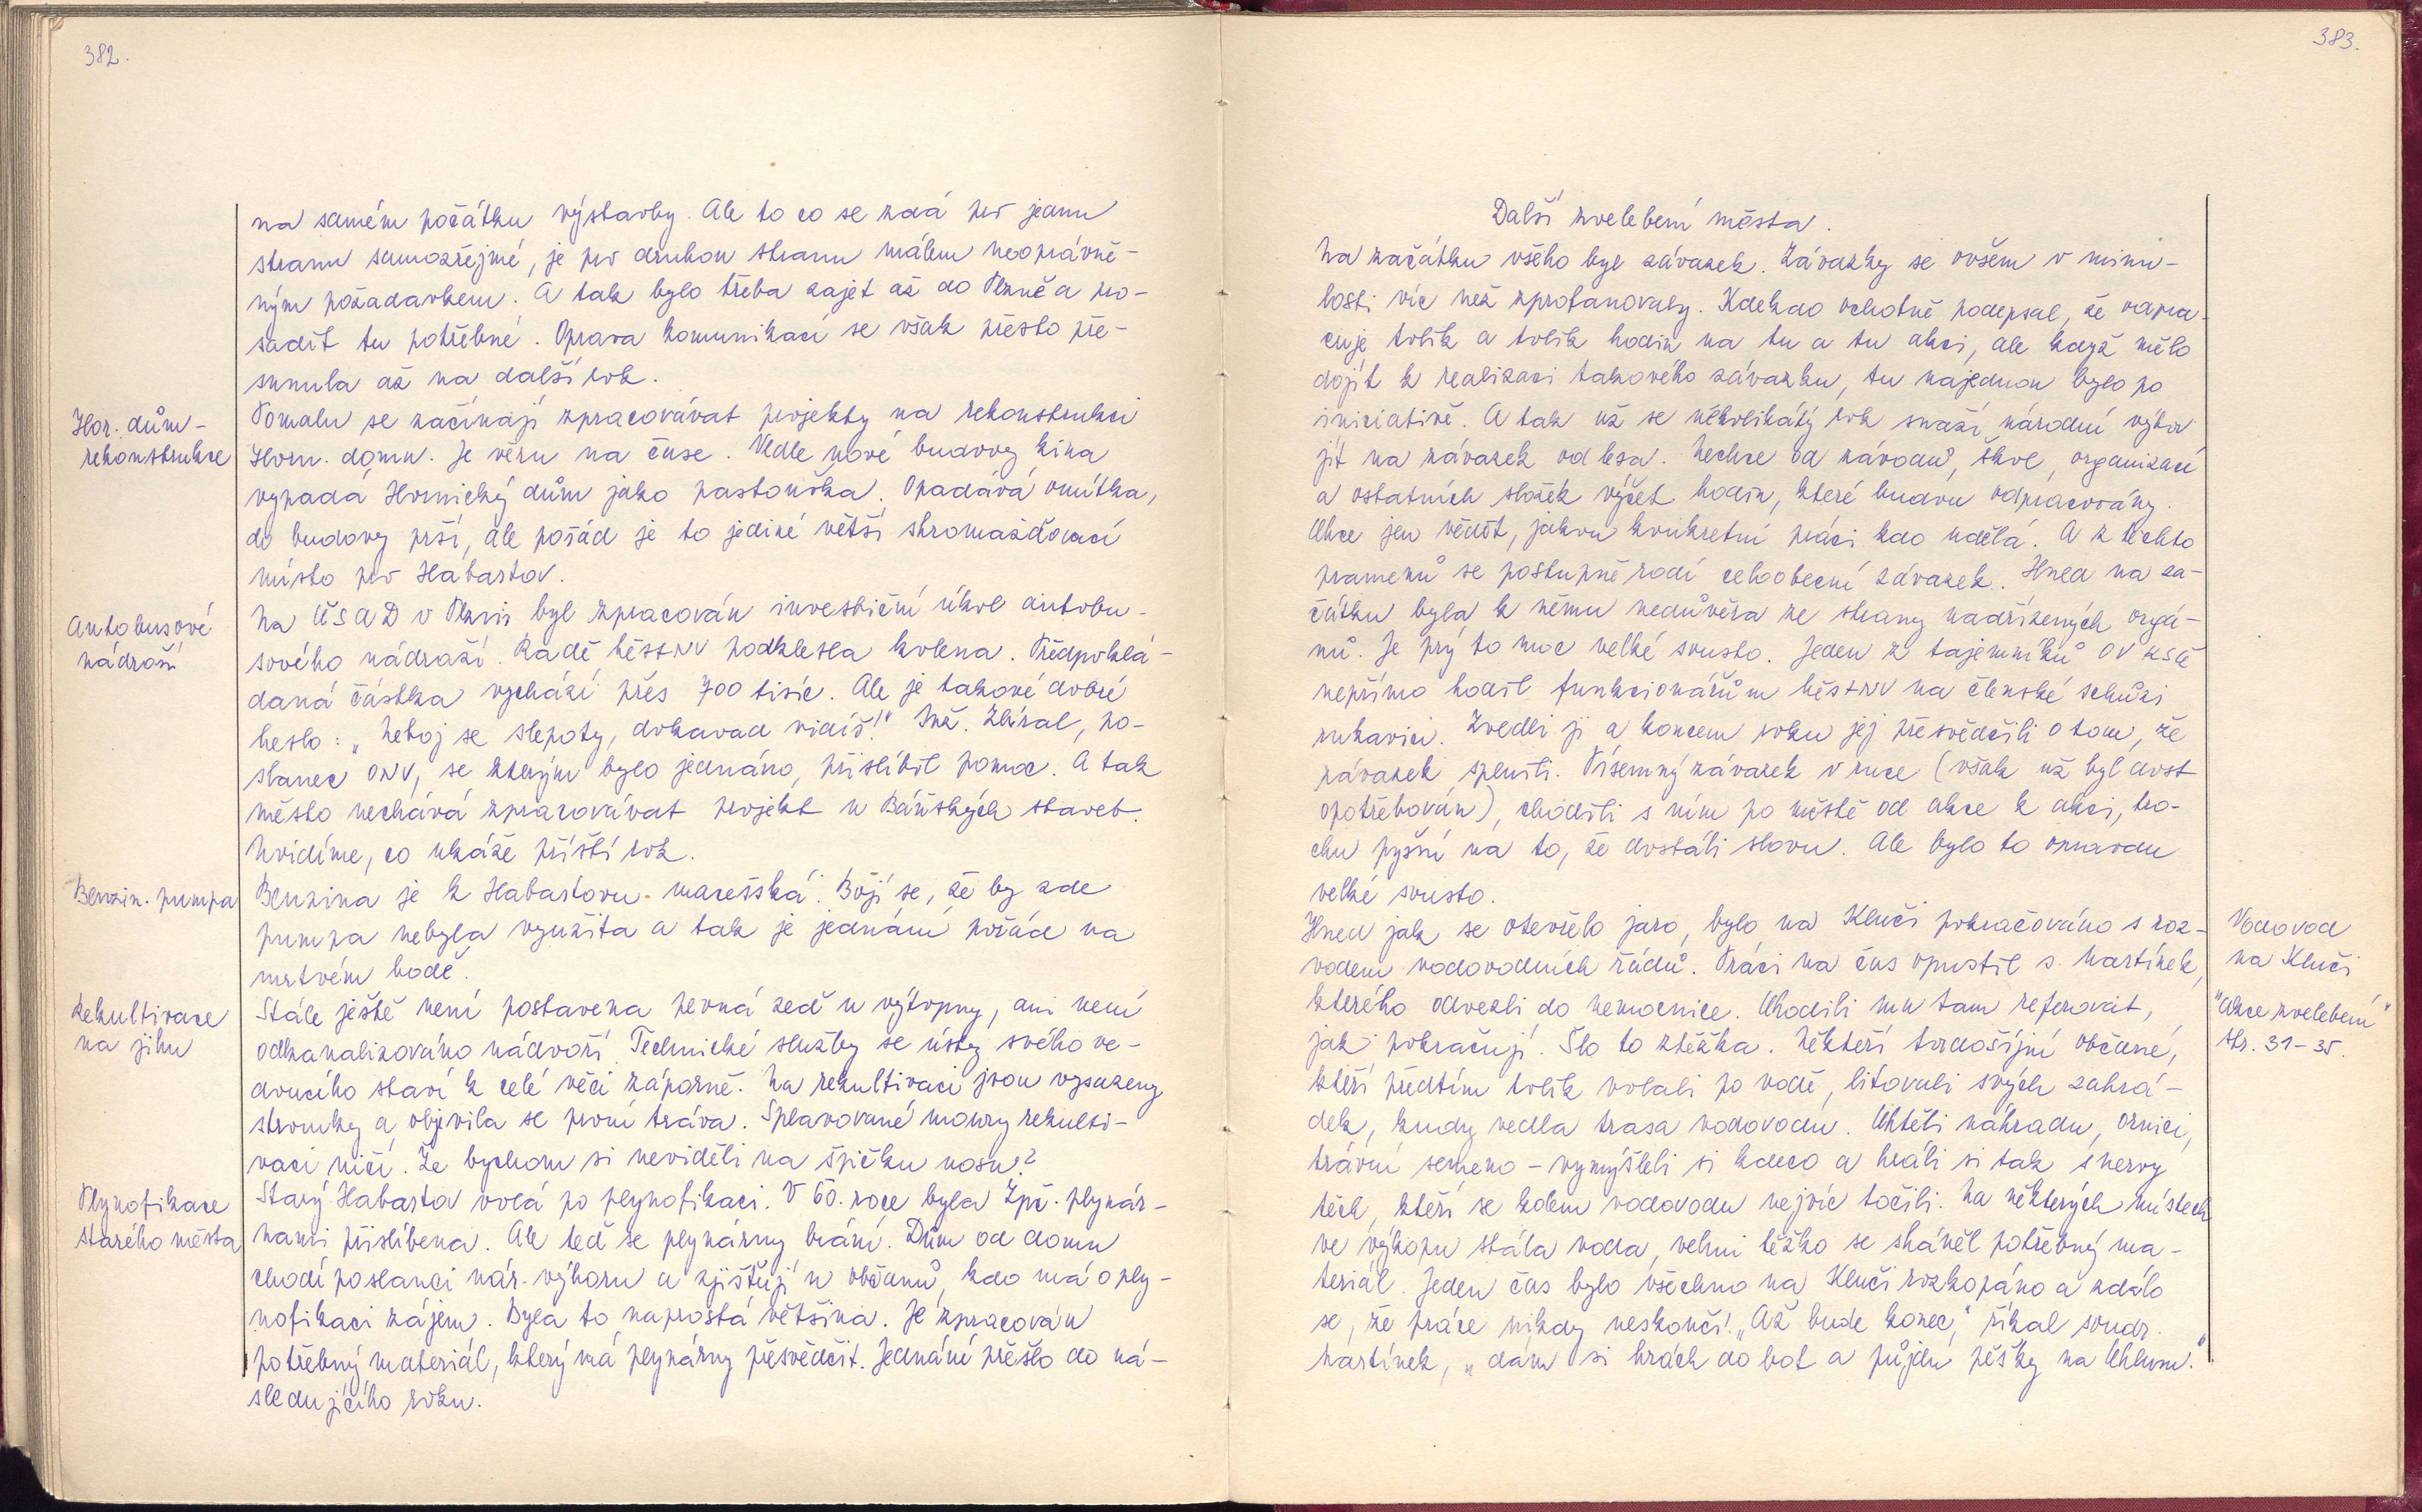 382.
na samém počátku výstavby. Ale to co se zdá pro jednu
stranu samozřejmé, je pro druhou stranu málem neoprávně-
ným požadavkem. A tak bylo třeba zajet až do Plzně a pro-
sadit tu potřebné. Oprava komunikací se však přesto pře-
sunula až na další rok.
Hor. dům -
rekonstrukce
Pomalu se začínají zpracovávat projekty na rekonstrukci
Horn. domu. Je věru na čase. Vedle nové budovy kina
vypadá Hornický dům jako pastouška. Opadává omítka,
do budovy prší, ale pořád je to jediné větší shromažďovací
místo pro Habartov.
Autobusové
nádraží
Na ČSAD v Plzni byl zpracován investiční úkol autobu-
sového nádraží. Radě MěstNV podklesla kolena. Předpoklá-
daná částka vychází přes 700 tisíc. Ale je takové dobré
heslo: „Neboj se slepoty, dokavad vidíš!" Inž. Zbíral, po-
slanec ONV, se kterým bylo jednáno, přislíbil pomoc. A tak
město nechává zpracovávat projekt u Báňských staveb.
Uvidíme, co ukáže příští rok.
Benzin. pumpa
Benzina je k Habartovu macešská. Bojí se, že by zde
pumpa nebyla využita a tak je jednání pořád na
mrtvém bodě.
Rekultivace
na jihu
Stále ještě není postavena pevná zeď u výtopny, ani není
odkanalizováno nádvoří. Technické služby se ústy svého ve-
doucího staví k celé věci záporně. Na rekultivaci jsou vysazeny
stromky a objevila se první tráva. Splavované moury rekulti-
vaci ničí. Že bychom si neviděli na špičku nosu?
Plynofikace
starého města
Starý Habartov volá po plynofikaci. V 60. roce byla Zpč. plynár-
nami přislíbena. Ale teď se plynárny brání. Dům od domu
chodí poslanci nár. výboru a zjišťují u občanů, kdo má o ply-
nofikaci zájem. Byla to naprostá většina. Je zpracován
potřebný materiál, který má plynárny přesvědčit. Jednání přešlo do ná-
sledujícího roku.
383.
Další zvelebení města.
Na začátku všeho byl závazek. Závazky se ovšem v minu-
losti víc než zprofanovaly. Kdekdo ochotně podepsal, že odpra-
cuje tolik a tolik hodin na tu a tu akci, ale když mělo
dojít k realizaci takového závazku, tu najednou bylo po
iniciativě. A tak už se několikátý rok snaží národní výbor
jít na závazek od lesa. Nechce od závodů, škol, organizací
a ostatních složek výčet hodin, které budou odpracovány.
Chce jen vědět, jakou konkretní práci kdo udělá. A z těchto
pramenů se postupně rodí celoobecní závazek. Hned na za-
čátku byla k němu nedůvěra ze strany nadřízených orgá-
nů. Je prý to moc velké sousto. Jeden z tajemníků OV KSČ
nepřímo hodil funkcionářům MěstNV na členské schůzi
rukavici. Zvedli ji a koncem roku jej přesvědčili o tom, že
závazek splnili. Písemný závazek v ruce (však už byl dost
opotřebován), chodili s ním po městě od akce k akci, tro-
chu pyšní na to, že dostáli slovu. Ale bylo to opravdu
velké sousto.
Vodovod
na Kluči
"Akce zvelebení"
str. 31-35.
Hned jak se otevřelo jaro, bylo na Kluči pokračováno s roz-
vodem vodovodních řádů. Práci na čas opustil s. Martínek,
kterého odvezli do nemocnice. Chodili mu tam referovat,
jak pokračují. Šlo to ztěžka. Někteří tvrdošíjní občané,
kteří předtím tolik volali po vodě, litovali svých zahrá-
dek, kudy vedla trasa vodovodu. Chtěli náhradu, ornici,
trávní semeno - vymýšleli si kdeco a hráli si tak s nervy
těch, kteří se kolem vodovodu nejvíc točili. Na některých místech
ve výkopu stála voda, velmi těžko se sháněl potřebný ma-
teriál. Jeden čas bylo všechno na Kluči rozkopáno a zdálo
se, že práce nikdy neskončí. „Až bude konec," říkal soudr.
Martínek, „dám si hrách do bot a půjdu pěšky na Chlum."